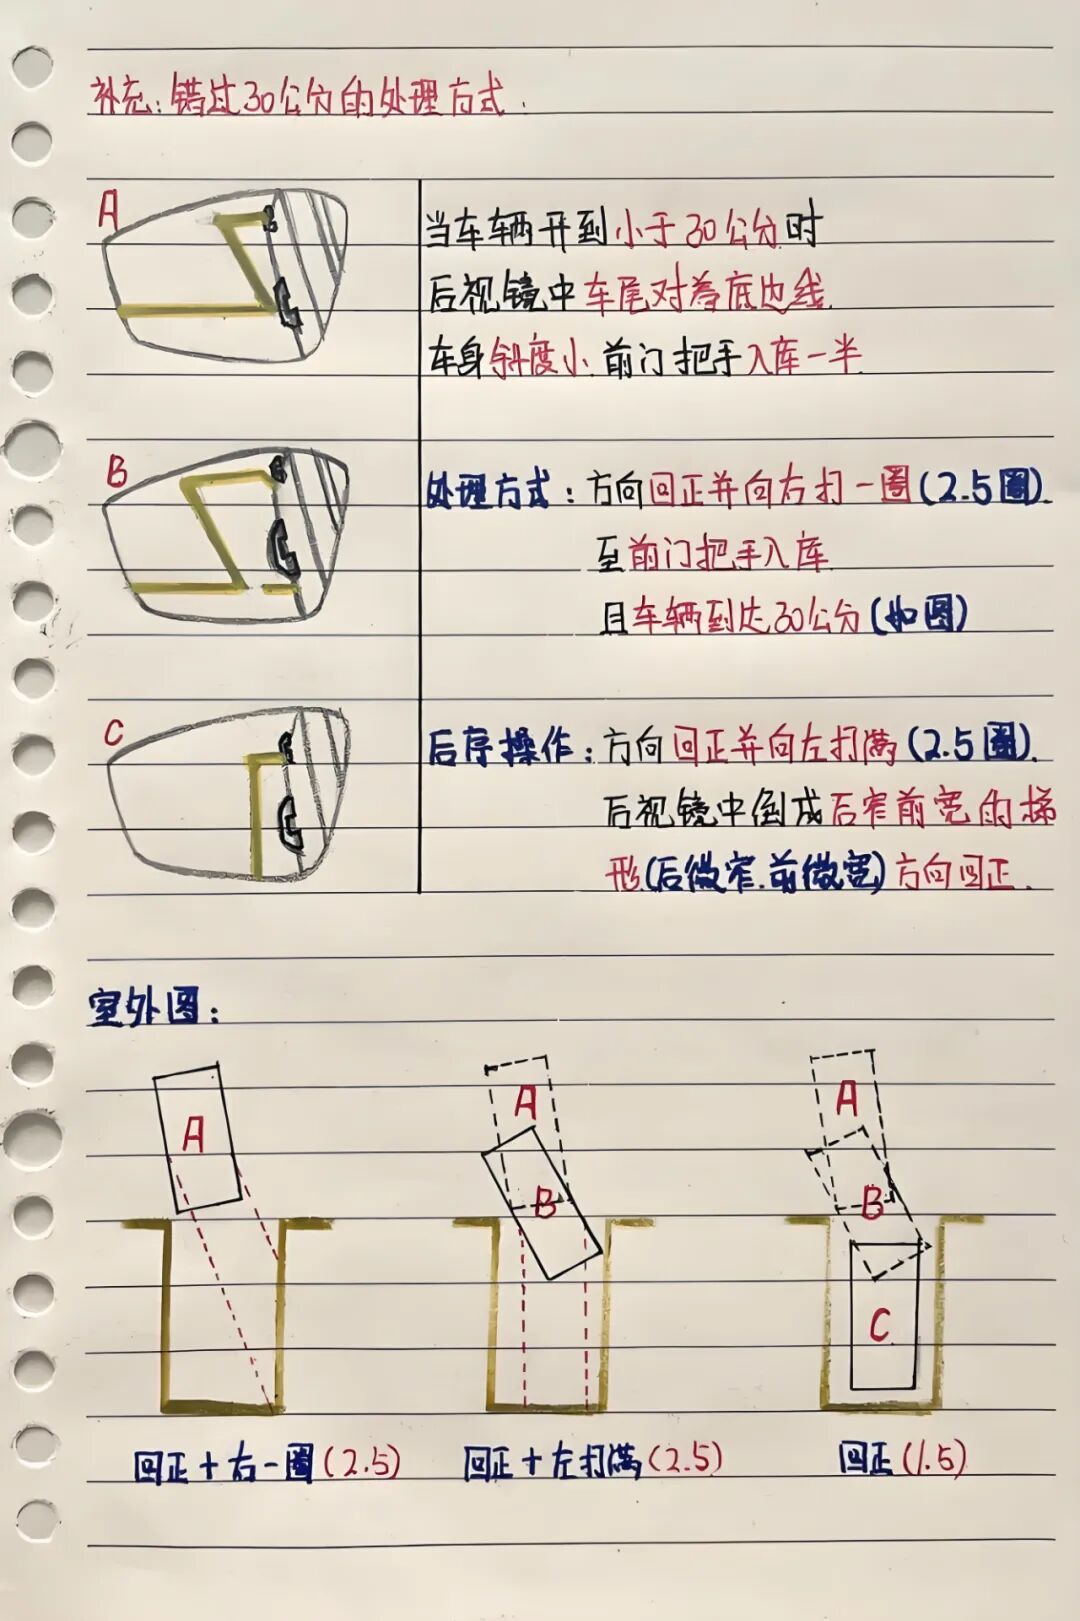 补充:错过30公分的处理方式.
A
当车辆开到小于30公分时
后视镜中车尾对着底边线
车身斜度小.前门把手入库一半
B
处理方式:方向回正并向右打一圈(2.5圈).
至前门把手入库
且车辆到达30公分(如图)
C
后序操作:方向回正并向左打满(2.5圈).
后视镜中倒成后窄前宽的梯
形(后微窄.前微宽)方向回正.
室外图:
A
A
B
A
B
C
回正+右一圈(2.5)
回正+左打满(2.5)
回正(1.5)